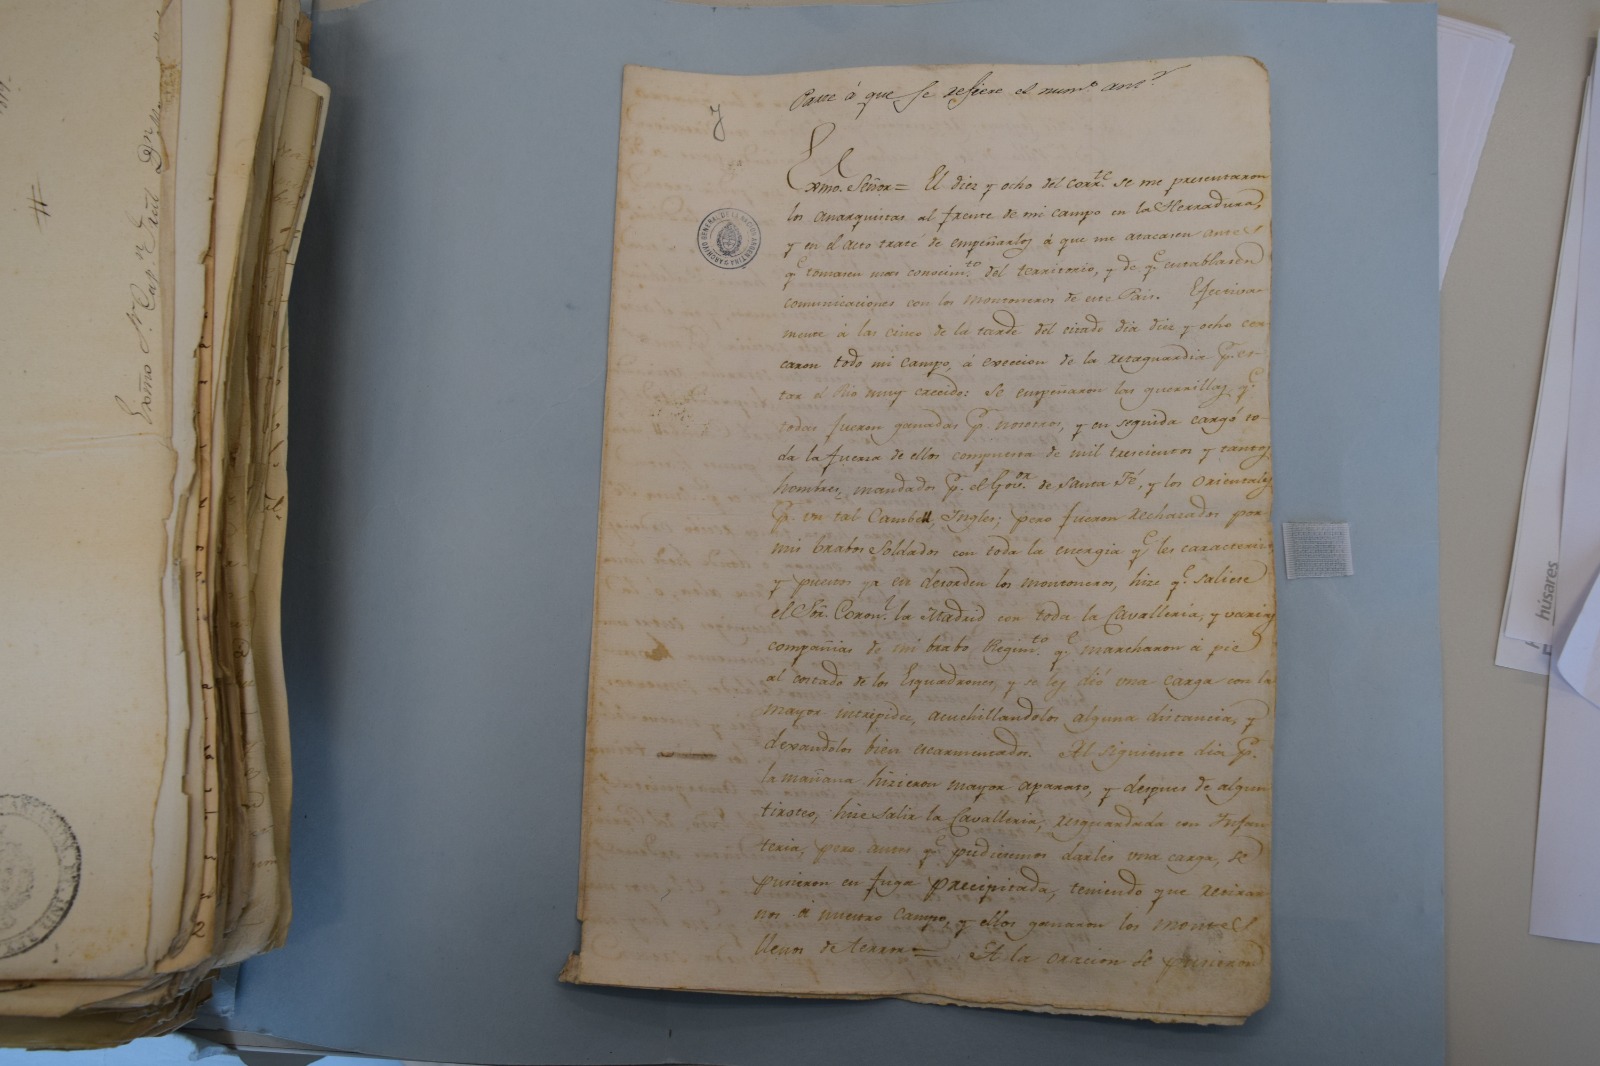 Parte á que se refiere el num.º ant.r
Exmo. Señor= El diez y ocho del corr.te se me presentaron
los anarquistas al frente de mi campo en la Herradura,
y en el acto traté de empeñarlos á que me atacasen antes
q.e tomasen mas conocim.to del territorio, y de q.e entablasen
comunicaciones con los montoneros de este Pais. Efectiva-
mente á las cinco de la tarde del citado dia diez y ocho cer-
caron todo mi campo, á excecion de la retaguardia p.r es-
tar el Rio muy crecido: Se empeñaron las guerrillas, q.e
todas fueron ganadas p.r nosotros, y en seguida cargó to-
da la fuerza de ellos compuesta de mil trescientos y tantos
hombres, mandados p.r el Gov.or de Santa Fé, y los Orientales
p.r un tal Cambell, Ingles; pero fueron rechazados por
mis brabos soldados con toda la energia q.e les caracteriza
y puestos ya en desorden los montoneros, hize q.e saliese
el Sór. Coron.l la Madrid con toda la Cavalleria, y varias
compañias de mi brabo Regim.to q.e marcharon á pie
al costado de los Esquadrones, y se les dió una carga con la
mayor intrepidez, acuchillandolos alguna distancia, y
dexandolos bien escarmentados. Al siguiente dia p.r
la mañana hizieron mayor aparato, y despues de algun
tiroteo, hize salir la Cavalleria, resguardada con Infan-
teria, pero antes q.e pudiesemos darles una carga, se
pusieron en fuga precipitada, teniendo que retirar-
nos á nuestro campo, y ellos ganaron los montes
llenos de terror= A la oracion se pusieron
ARCHIVO GENERAL DE LA NACION ARGENTINA
Exmo S.or Cap.n Gral D.n
húsares